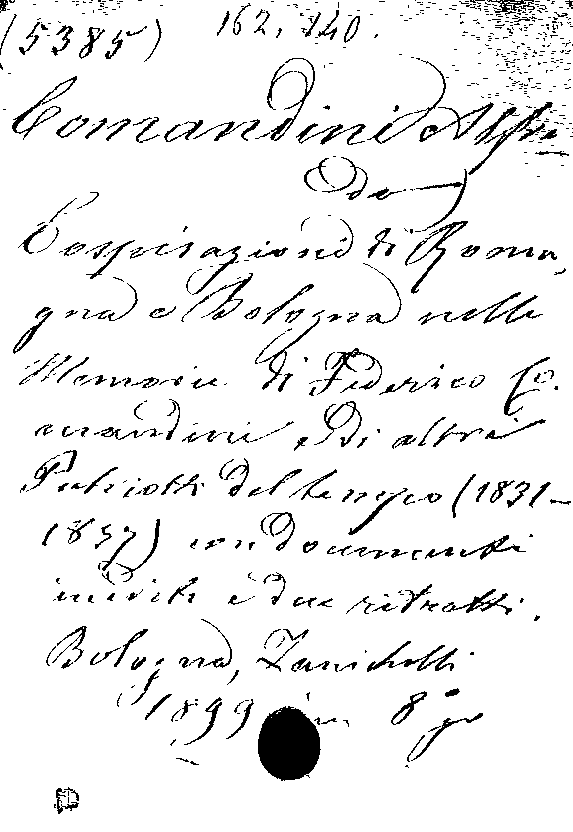 (5385) 162, 140.
Comandini Alfre
do
Cospirazioni di Roma,
gna e Bologna nelle
Memorie di Federico Co.
mandini e Di altri
Patriotti del tempo (1831-
1857) con documenti
inediti e due ritratti.
Bologna, Zanichelli
1899 in 8° gr